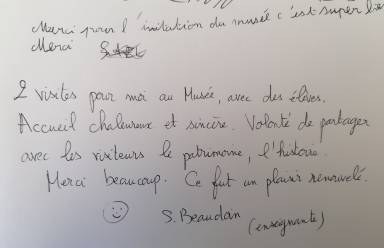 Merci pour l'invitation du musée c'est super bien
Merci
2 visites pour moi au Musée, avec des élèves.
Accueil chaleureux et sincère. Volonté de partager
avec les visiteurs le patrimoine, l'histoire.
Merci beaucoup. Ce fut un plaisir renouvelé.
S. Beaudan (enseignante)